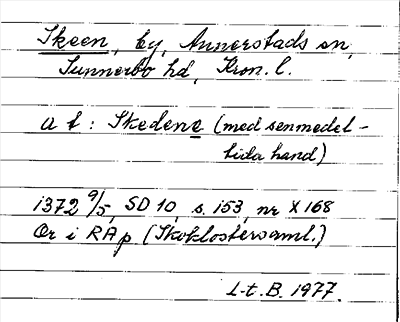 Skeen, by, Annerstads sn,
Sunnerbo hd, Kron. l.
a t : Skedene (med senmedel-
tida hand)
1372 9/5, SD 10, s. 153, nr X 168
Or i RAp (Skoklostersaml.)
L-t. B. 1977.